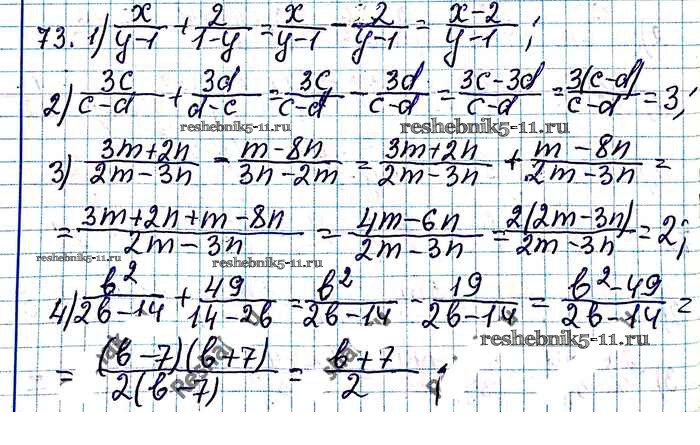 73. 1) x/(y-1) + 2/(1-y) = x/(y-1) - 2/(y-1) = (x-2)/(y-1);
2) 3c/(c-d) + 3d/(d-c) = 3c/(c-d) - 3d/(c-d) = (3c-3d)/(c-d) = 3(c-d)/(c-d) = 3;
reshebnik5-11.ru reshebnik5-11.ru
3) (3m+2n)/(2m-3n) - (m-8n)/(3n-2m) = (3m+2n)/(2m-3n) + (m-8n)/(2m-3n) =
= (3m+2n+m-8n)/(2m-3n) = (4m-6n)/(2m-3n) = 2(2m-3n)/(2m-3n) = 2;
reshebnik5-11.ru reshebnik5-11.ru
4) b²/(2b-14) + 49/(14-2b) = b²/(2b-14) - 19/(2b-14) = (b²-49)/(2b-14) =
reshebnik5-11.ru
= (b-7)(b+7)/2(b-7) = (b+7)/2;